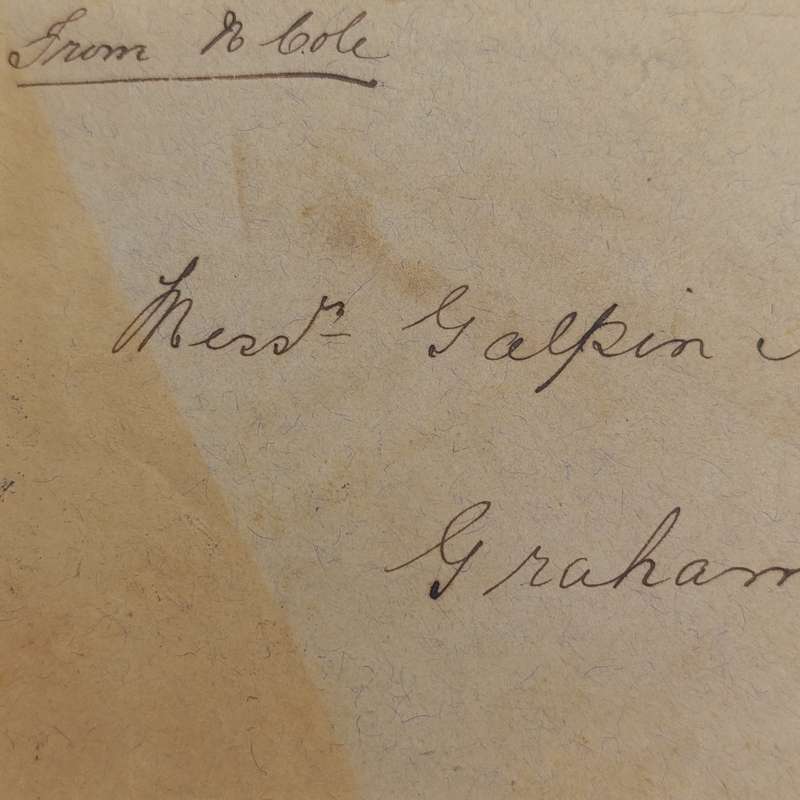 From N Cole
Messrs Galpin
Graham